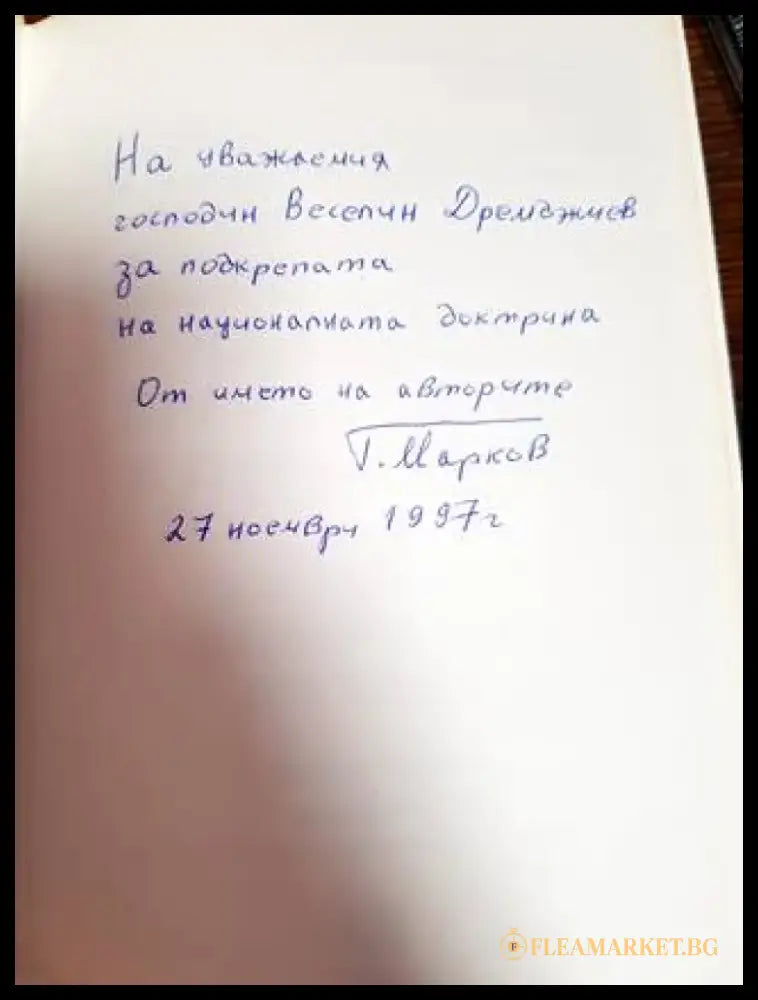 На уважаемия
господин Веселин Дремджиев
за подкрепата
на националната доктрина
От името на авторите
Г. Марков
27 ноември 1997 г
FLEAMARKET.BG